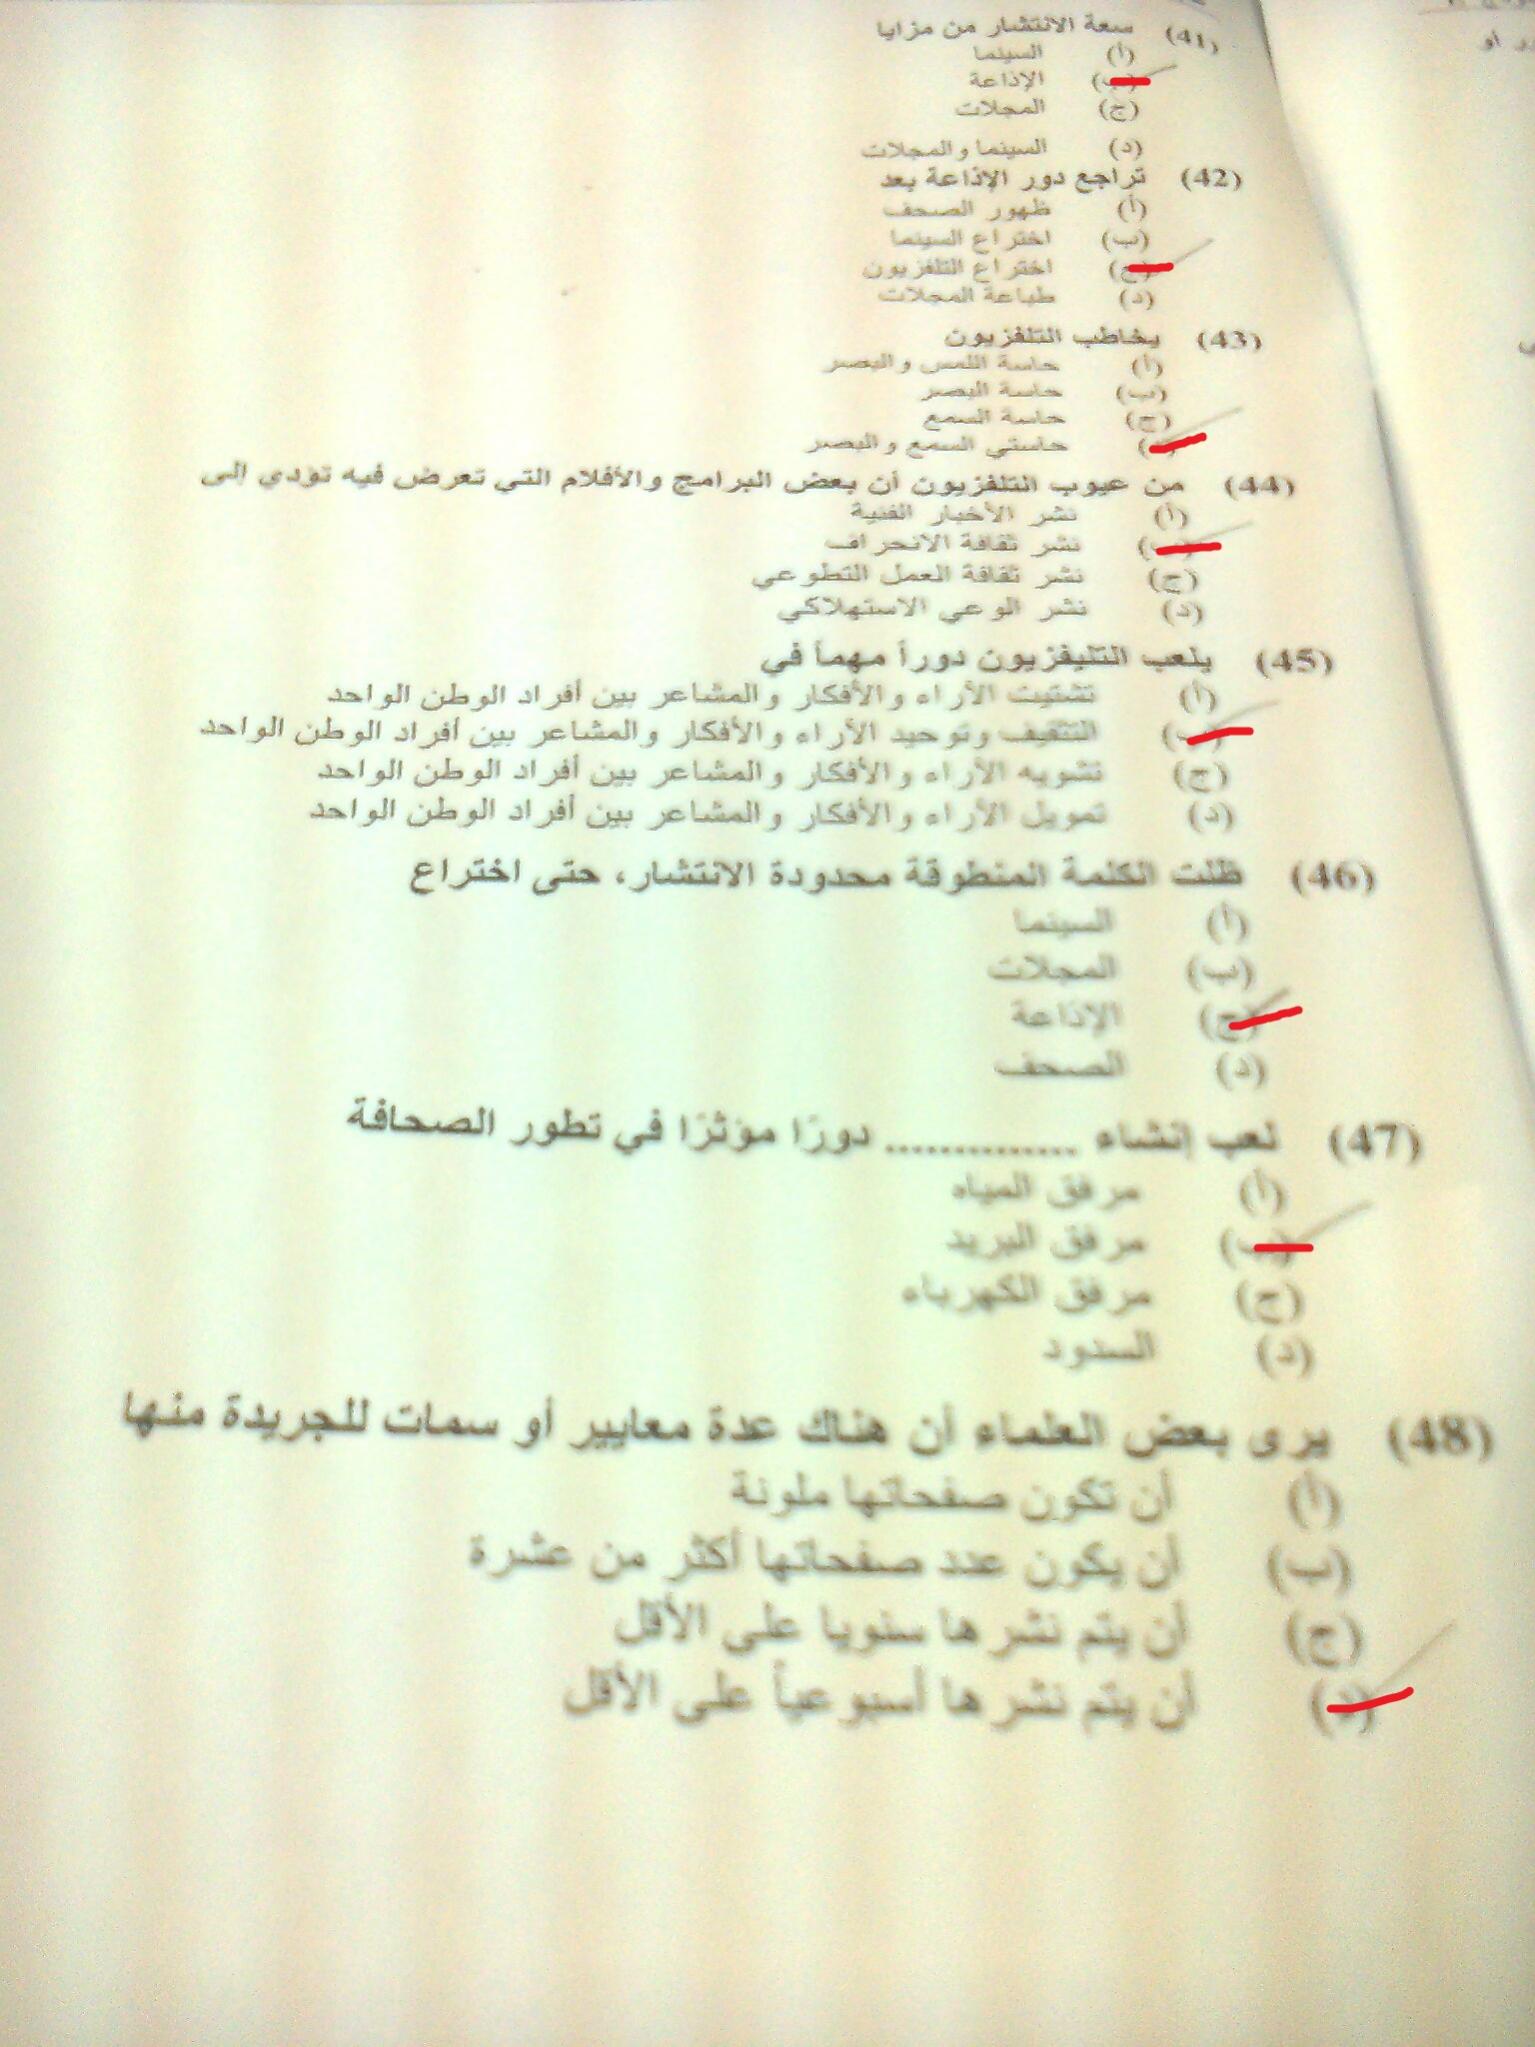 (41) سعة الانتشار من مزايا
(أ) السينما
(ب) الإذاعة
(ج) المجلات
(د) السينما والمجلات
(42) تراجع دور الإذاعة بعد
(أ) ظهور الصحف
(ب) اختراع السينما
(ج) اختراع التلفزيون
(د) طباعة المجلات
(43) يخاطب التلفزيون
(أ) حاسة اللمس والبصر
(ب) حاسة البصر
(ج) حاسة السمع
(د) حاستي السمع والبصر
(44) من عيوب التلفزيون أن بعض البرامج والأفلام التي تعرض فيه تؤدي إلى
(أ) نشر الأخبار الفنية
(ب) نشر ثقافة الانحراف
(ج) نشر ثقافة العمل التطوعي
(د) نشر الوعي الاستهلاكي
(45) يلعب التليفزيون دوراً مهماً في
(أ) تشتيت الأراء والأفكار والمشاعر بين أفراد الوطن الواحد
(ب) التثقيف وتوحيد الأراء والأفكار والمشاعر بين أفراد الوطن الواحد
(ج) تشويه الأراء والأفكار والمشاعر بين أفراد الوطن الواحد
(د) تمويل الأراء والأفكار والمشاعر بين أفراد الوطن الواحد
(46) ظلت الكلمة المنطوقة محدودة الانتشار، حتى اختراع
(أ) السينما
(ب) المجلات
(ج) الإذاعة
(د) الصحف
(47) لعب إنشاء .............. دورًا مؤثرًا في تطور الصحافة
(أ) مرفق المياه
(ب) مرفق البريد
(ج) مرفق الكهرباء
(د) السدود
(48) يرى بعض العلماء أن هناك عدة معايير أو سمات للجريدة منها
(أ) أن تكون صفحاتها ملونة
(ب) أن يكون عدد صفحاتها أكثر من عشرة
(ج) أن يتم نشرها سنويا على الأقل
(د) أن يتم نشرها أسبوعياً على الأقل